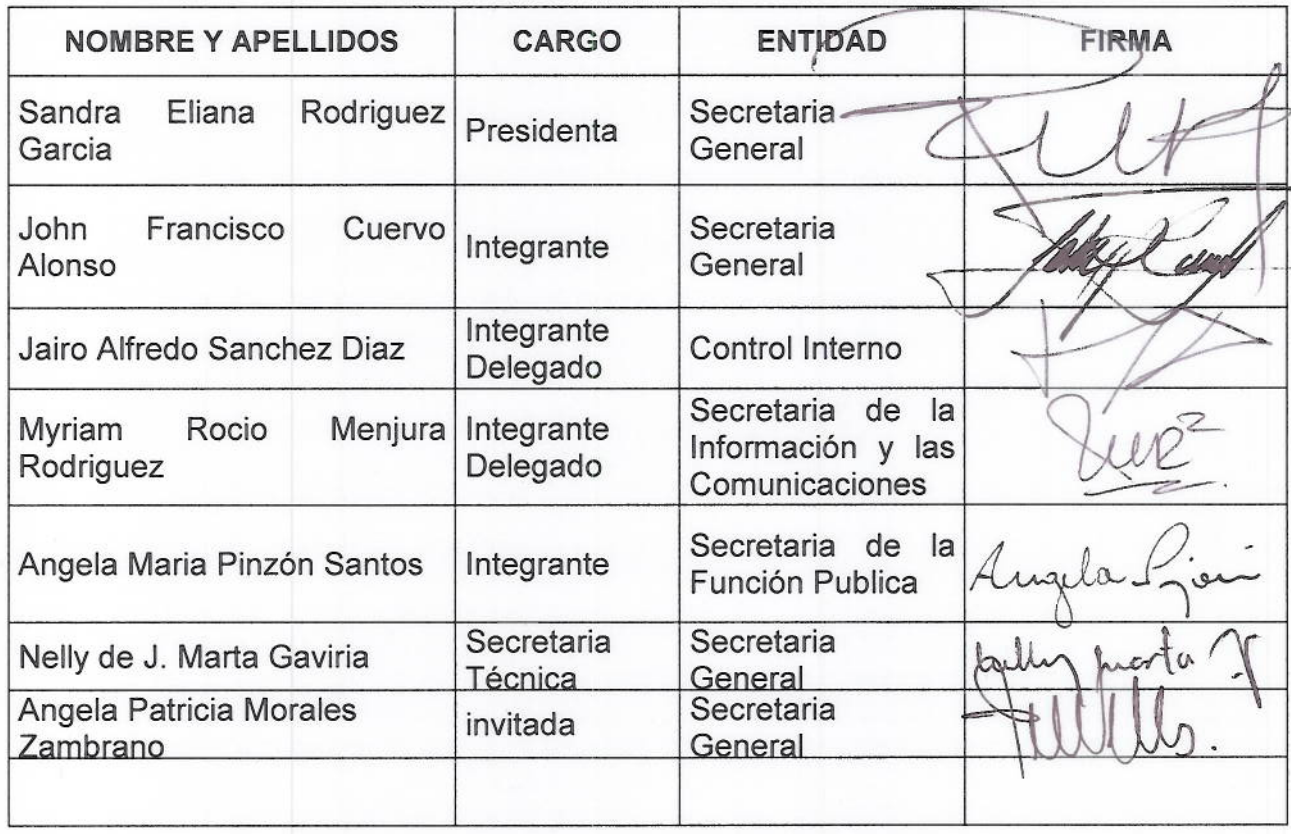 NOMBRE Y APELLIDOS CARGO ENTIDAD FIRMA
Sandra Eliana Rodriguez
Garcia
Presidenta
Secretaria
General
John Francisco Cuervo
Alonso
Integrante
Secretaria
General
Jairo Alfredo Sanchez Diaz
Integrante
Delegado
Control Interno
Myriam Rocio Menjura
Rodriguez
Integrante
Delegado
Secretaria de la
Información y las
Comunicaciones
Angela Maria Pinzón Santos
Integrante
Secretaria de la
Función Publica
Angela
Nelly de J. Marta Gaviria
Secretaria
Técnica
Secretaria
General
Nelly Marta
Angela Patricia Morales
Zambrano
invitada
Secretaria
General